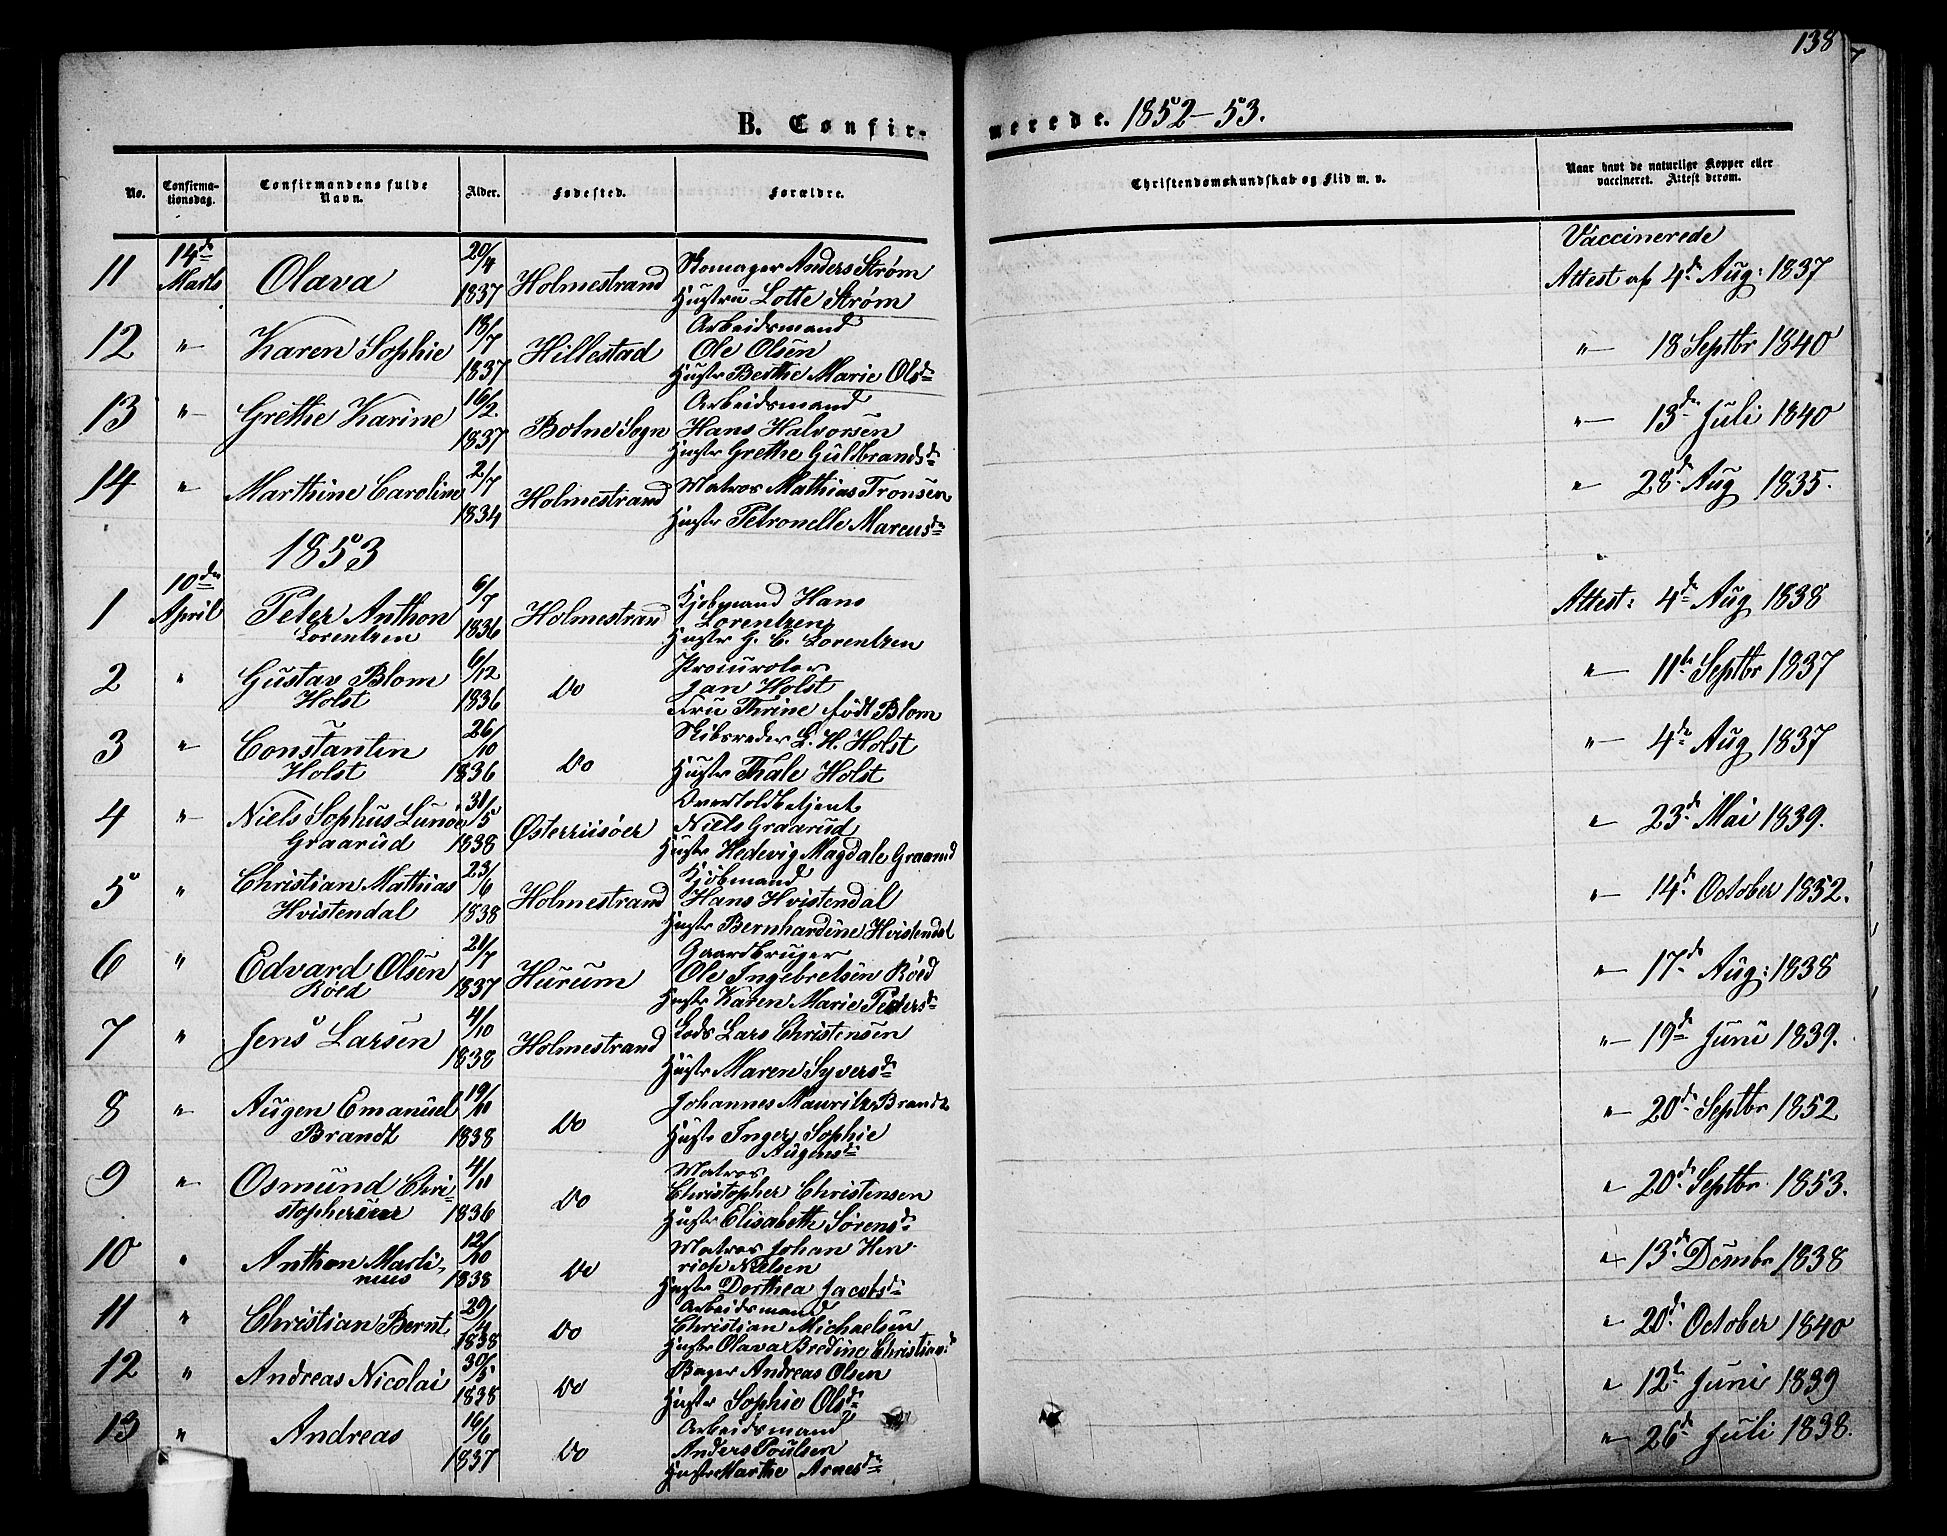 138
7
B. Confir-
merede. 1852-53.
No.
Confirma-
tionsdag.
Confirmandens fulde
Navn.
Alder.
Fødested.
Forældre.
Christendomskundskab og Flid m. v.
Naar havt de naturlige Kopper eller
vaccineret. Attest derom.
Vaccinerede
11 14de Marts Olava 20/4 1837 Holmestrand Skomager Anders Strøm
Hustru Lotte Strøm
Attest af 4de Aug: 1837
12 " Karen Sophie 18/7 1837 Hillestad Arbeidsmand
Ole Olsen
Hustr Berthe Marie Olsdr
" 18 Septbr 1840
13 " Grethe Karine 16/2 1837 Botne Sogn Arbeidsmand
Hans Halvorsen
Hustr Grethe Guldbrandsdr
" 13de Juli 1840
14 " Marthine Caroline 2/7 1834 Holmestrand Matros Mathias Tronsen
Hustr Petronelle Marcusdr
" 28de Aug 1835.
1853
1 10de April Peter Anthon
Lorentzen 6/7 1836 Holmestrand Kjøbmand Hans
Lorentzen
Hustr G. C. Lorentzen
Attest: 4de Aug 1838
2 " Gustav Blom
Holst 6/12 1836 Do Procurator
Jan Holst
Fru Thrine født Blom
" 11te Septbr 1837
3 " Constantin
Holst 26/10 1836 Do Skibsreder L. H. Holst
Hustr Thale Holst
" 4de Aug 1837
4 " Niels Sophus Lunoe
Graarud 31/5 1838 Østerriisøer Overtoldbetjent
Niels Graarud
Hustr Hedevig Magdale Graarud
" 23de Mai 1839.
5 " Christian Mathias
Hvistendal 23/6 1838 Holmestrand Kjøbmand
Hans Hvistendal
Hustr Bernhardine Hvistendal
" 14de October 1852.
6 " Edvard Olsen
Röed 21/7 1837 Hurum Gaardbruger
Ole Ingebretsen Röed
Hustr Karen Marie Pedersdr
" 17de Aug: 1838
7 " Jens Larsen 4/10 1838 Holmestrand Lods Lars Christensen
Hustr Maren Syversdr
" 19de Juni 1839.
8 " Augen Emanuel
Brandt 19/11 1838 Do Johannes Mauritz Brandt
Hustr Inger Sophie
Augensdr
" 20de Septbr 1852
9 " Osmund Chri-
stophersen 4/11 1836 Do Matros
Christopher Christensen
Hustr Elisabeth Sørensdr
" 20de Septbr 1853.
10 " Anthon Marti-
nius 12/10 1838 Do Matros Johan Hen-
rich Nilsen
Hustr Dorthea Jacobsdr
" 13de Dcmbr 1838
11 " Christian Bernt 29/4 1838 Do Arbeidsmand
Christian Michaelsen
Hustr Olava Bredine Christiansd
" 20de October 1840
12 " Andreas Nicolai 30/5 1838 Do Bager Andreas Olsen
Hustr Sophie Olsdr
" 12te Juni 1839
13 " Andreas 16/6 1837 Do Arbeidsmand
Anders Poulsen
Hustr Marthe Arnesdr
" 26de Juli 1838.